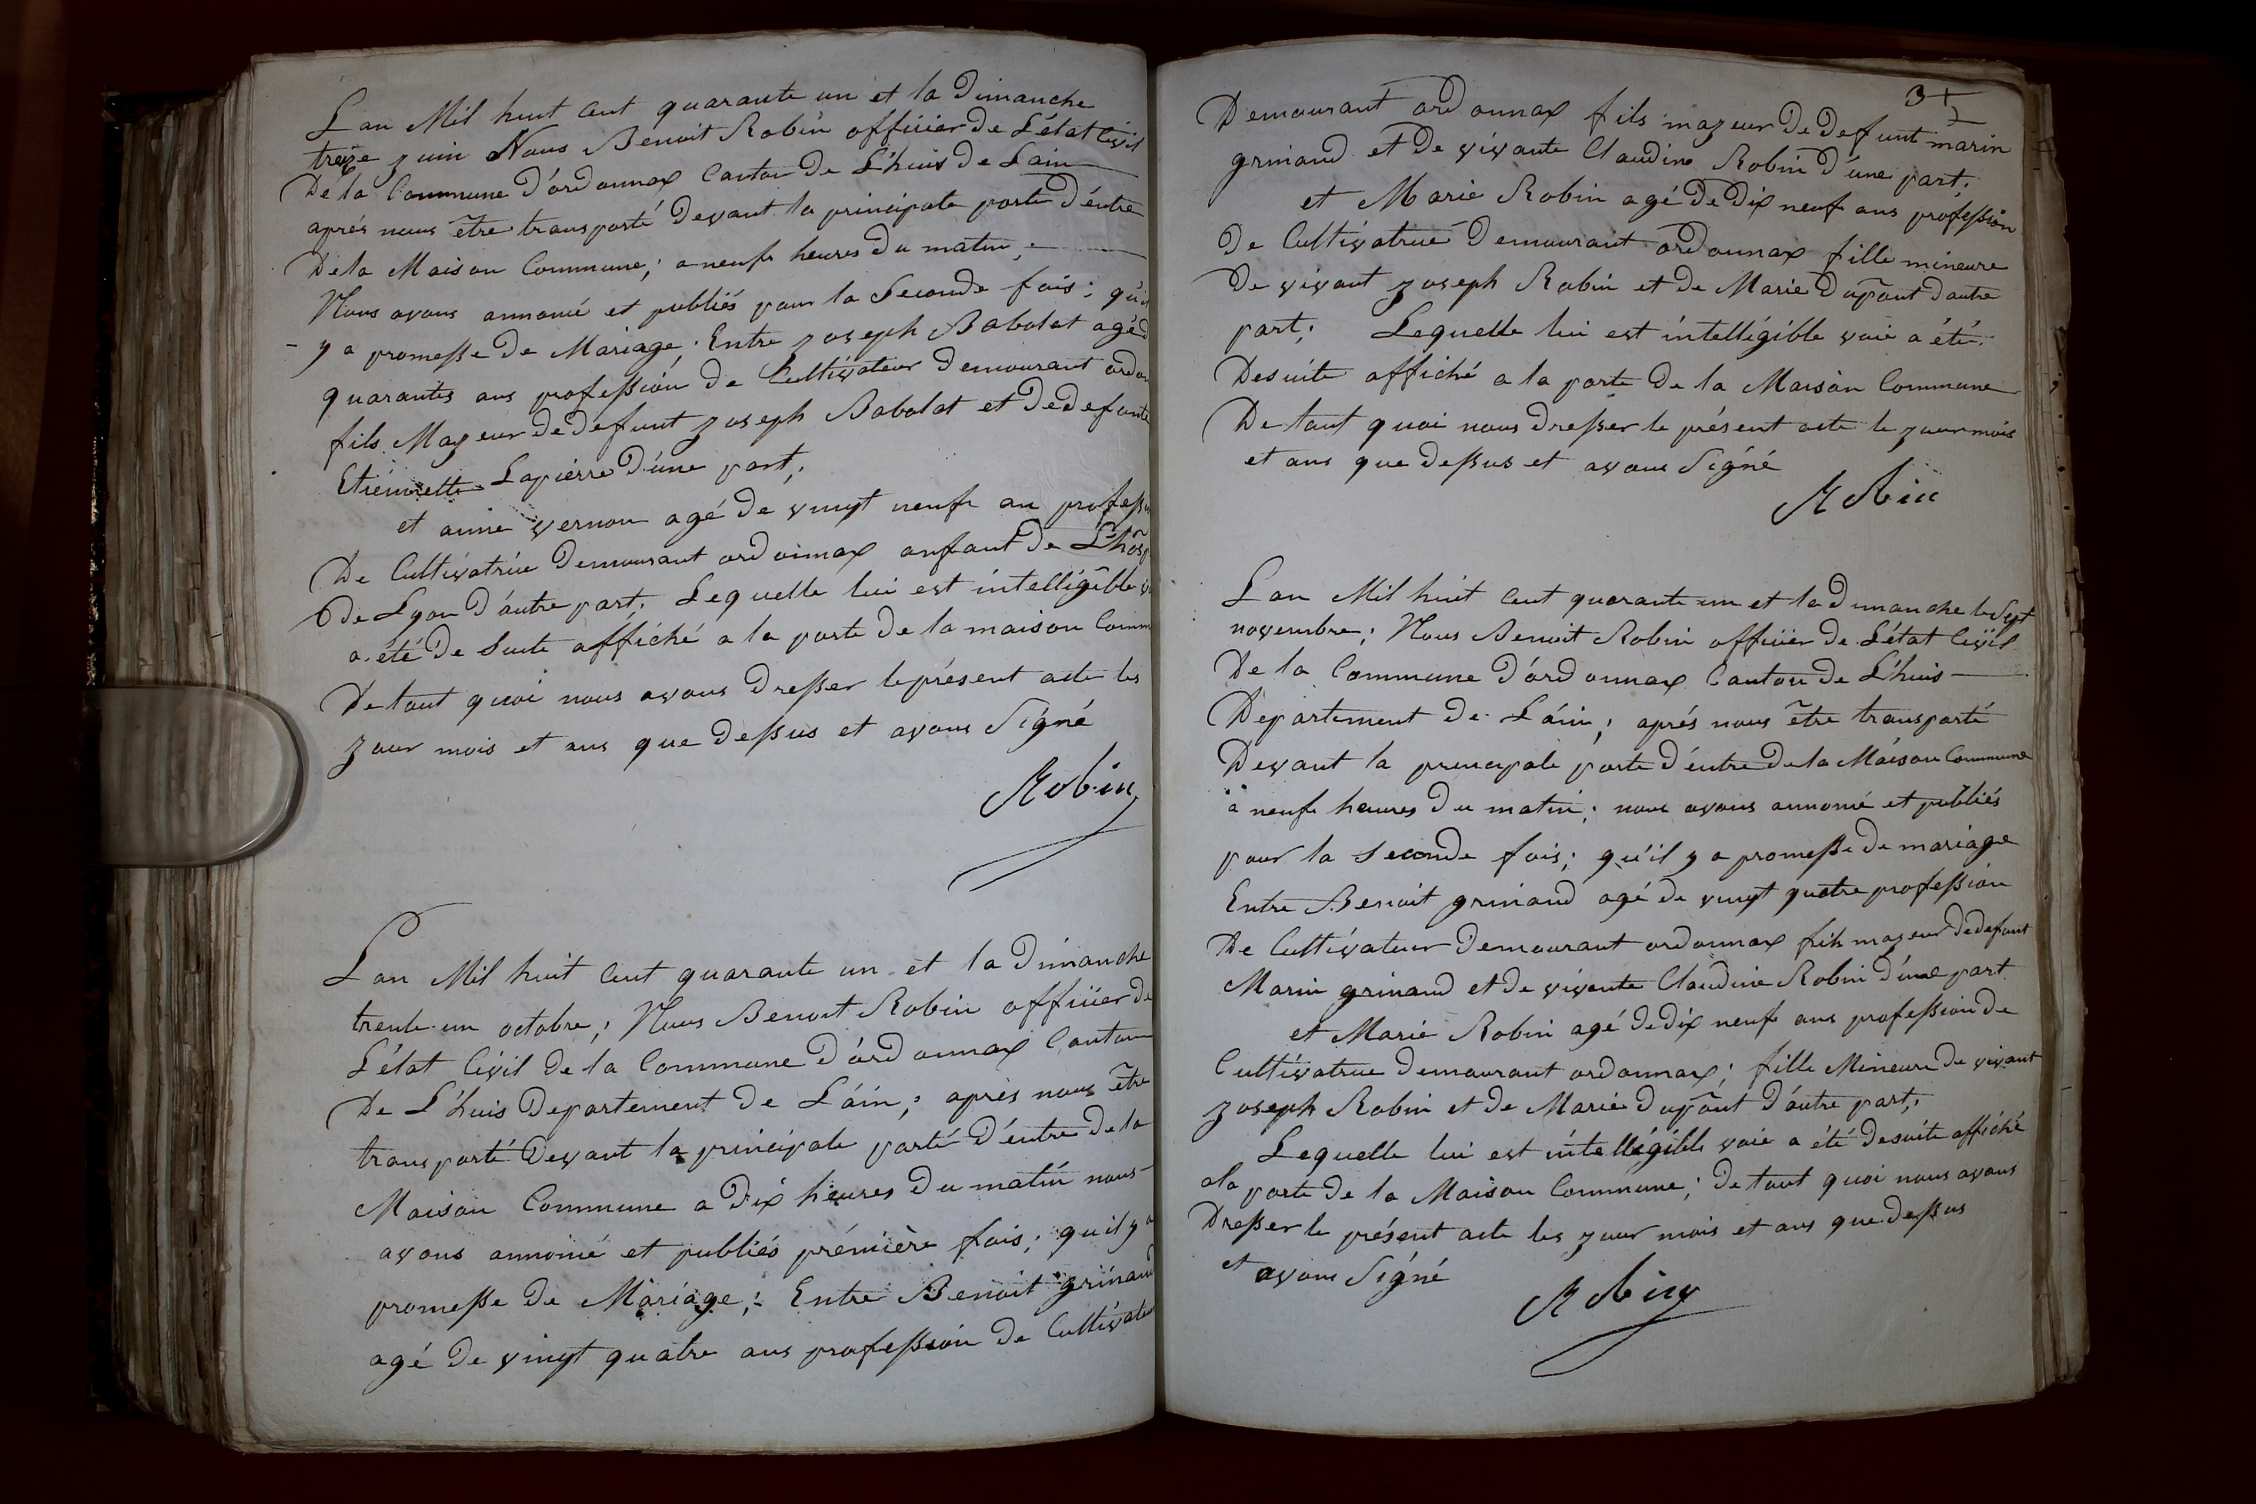 Lan Mil huit Cent quarante un et la Dimanche
treize juin Nous Benoit Robin offiiier de L'état Civil
De la Commune D'ordonnax Canton De L'huis de Lain
aprés nous être transporté Devant la principale porte D'éntre
De la Maison Commune; a neufs heures Du matin.
Nous avons annonié et publiés pour la Seconde fois; qu'il
y a promesse De Mariage; Entre Joseph Babolat agé d
quarantes ans profession De Cultivateur Demourant ordon
fils Majeur De Defunt Joseph Babolat et De defunte
Etiennette Lapierre D'úne part;
et anne vernon agé De vingt neufs an profession
De Cultivatriie Demourant ordonnax anfant De L'hosp
De Lyon D'autre part; Lequelle lui est intelligible v
a été De Suite affiché a la porte De la maison Comm
De tout quoi nous avons Dresser le présent acte les
jour mois et ans que Dessus et avons Signé
Robin
Lan Mil huit Cent quarante un et la Dimanche
trente un octobre; Nous Benoit Robin offiiier De
L'état Civil De la Commune D'órdonnax Canton
De L'huis Departement De L'áin; après nous être
transporté Devant la principale porté D'éntre De la
Maison Commune a Dix heures Du matin nous
avons annonié et publiés prémière fois; qu'il y a
promesse De Mariage; Entre Benoit grinand
agé De vingt quatre ans profession De Cultivateur
3+
Demourant ordonnax fils majeur De Defunt marin
grinand et De vivante Claudine Robin D'úne part;
et Marie Robin agé De Dix neuf ans profession
De Cultivatriie Demourant ordonnax fille mineure
De vivant Joseph Robin et De Marie Dupont dautre
part; Lequelle lui est intelligible voie a été
Desuite affiché a la porte De la Maison Commune
De tout quoi nous Dresser le présent acte le jour mois
et ans que Dessus et avons Signé
Robin
Lan Mil huit Cent quarante un et la Dimanche le Sept
novembre; Nous Benoit Robin offiiier De L'état Civil
De la Commune D'órdonnax Canton De L'huis
Departement De L'áin; aprés nous être transporté
Devant la principale porte D'éntre De la Maison Commune
à neufs heures Du matin; nous avons annonié et publiés
pour la Seconde fois; qu'il y a promesse De mariage
Entre Benoit grinand agé De vingt quatre profession
De Cultivateur Demourant ordonnax fils majeur De defunt
Marin grinand et De vivente Claudine Robin D'úne part
et Marie Robin agé De Dix neufs ans profession De
Cultivatriie Demourant ordonnax; fille Mineure De vivant
Joseph Robin et De Marie Dupont D'áutre part;
Lequelle lui est intelligible voie a été Desuite affiché
a la porte De la Maison Commune; De tout quoi nous avons
Dresser le présent acte les jour mois et ans que Dessus
et avons Signé
Robin